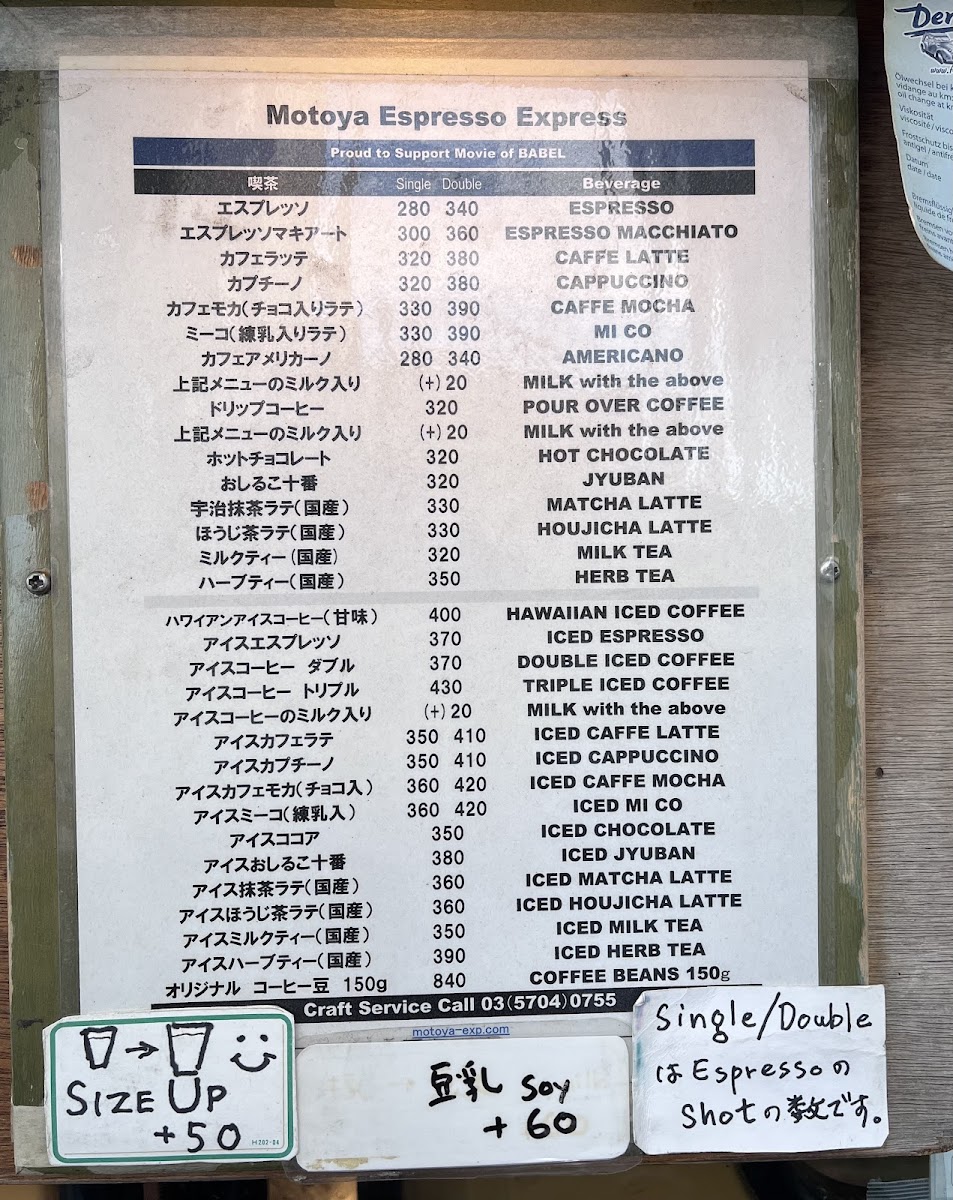 Motoya Espresso Express
Proud to Support Movie of BABEL
喫茶 Single Double Beverage
エスプレッソ 280 340 ESPRESSO
エスプレッソマキアート 300 360 ESPRESSO MACCHIATO
カフェラッテ 320 380 CAFFE LATTE
カプチーノ 320 380 CAPPUCCINO
カフェモカ(チョコ入りラテ) 330 390 CAFFE MOCHA
ミーコ(練乳入りラテ) 330 390 MI CO
カフェアメリカーノ 280 340 AMERICANO
上記メニューのミルク入り (+)20 MILK with the above
ドリップコーヒー 320 POUR OVER COFFEE
上記メニューのミルク入り (+)20 MILK with the above
ホットチョコレート 320 HOT CHOCOLATE
おしるこ十番 320 JYUBAN
宇治抹茶ラテ(国産) 330 MATCHA LATTE
ほうじ茶ラテ(国産) 330 HOUJICHA LATTE
ミルクティー(国産) 320 MILK TEA
ハーブティー(国産) 350 HERB TEA
ハワイアンアイスコーヒー(甘味) 400 HAWAIIAN ICED COFFEE
アイスエスプレッソ 370 ICED ESPRESSO
アイスコーヒー ダブル 370 DOUBLE ICED COFFEE
アイスコーヒー トリプル 430 TRIPLE ICED COFFEE
アイスコーヒーのミルク入り (+)20 MILK with the above
アイスカフェラテ 350 410 ICED CAFFE LATTE
アイスカプチーノ 350 410 ICED CAPPUCCINO
アイスカフェモカ(チョコ入) 360 420 ICED CAFFE MOCHA
アイスミーコ(練乳入) 360 420 ICED MI CO
アイスココア 350 ICED CHOCOLATE
アイスおしるこ十番 380 ICED JYUBAN
アイス抹茶ラテ(国産) 360 ICED MATCHA LATTE
アイスほうじ茶ラテ(国産) 360 ICED HOUJICHA LATTE
アイスミルクティー(国産) 350 ICED MILK TEA
アイスハーブティー(国産) 390 ICED HERB TEA
オリジナル コーヒー豆 150g 840 COFFEE BEANS 150g
Craft Service Call 03(5704)0755
motoya-exp.com
SIZE UP
+50
豆乳 soy
+60
Single/Double
はEspressoの
shotの数です。
Ölwechsel bei
vidange au
oil change at
Viskosität
viscosité
Frostschutz bis
antigel
Datum
date / date